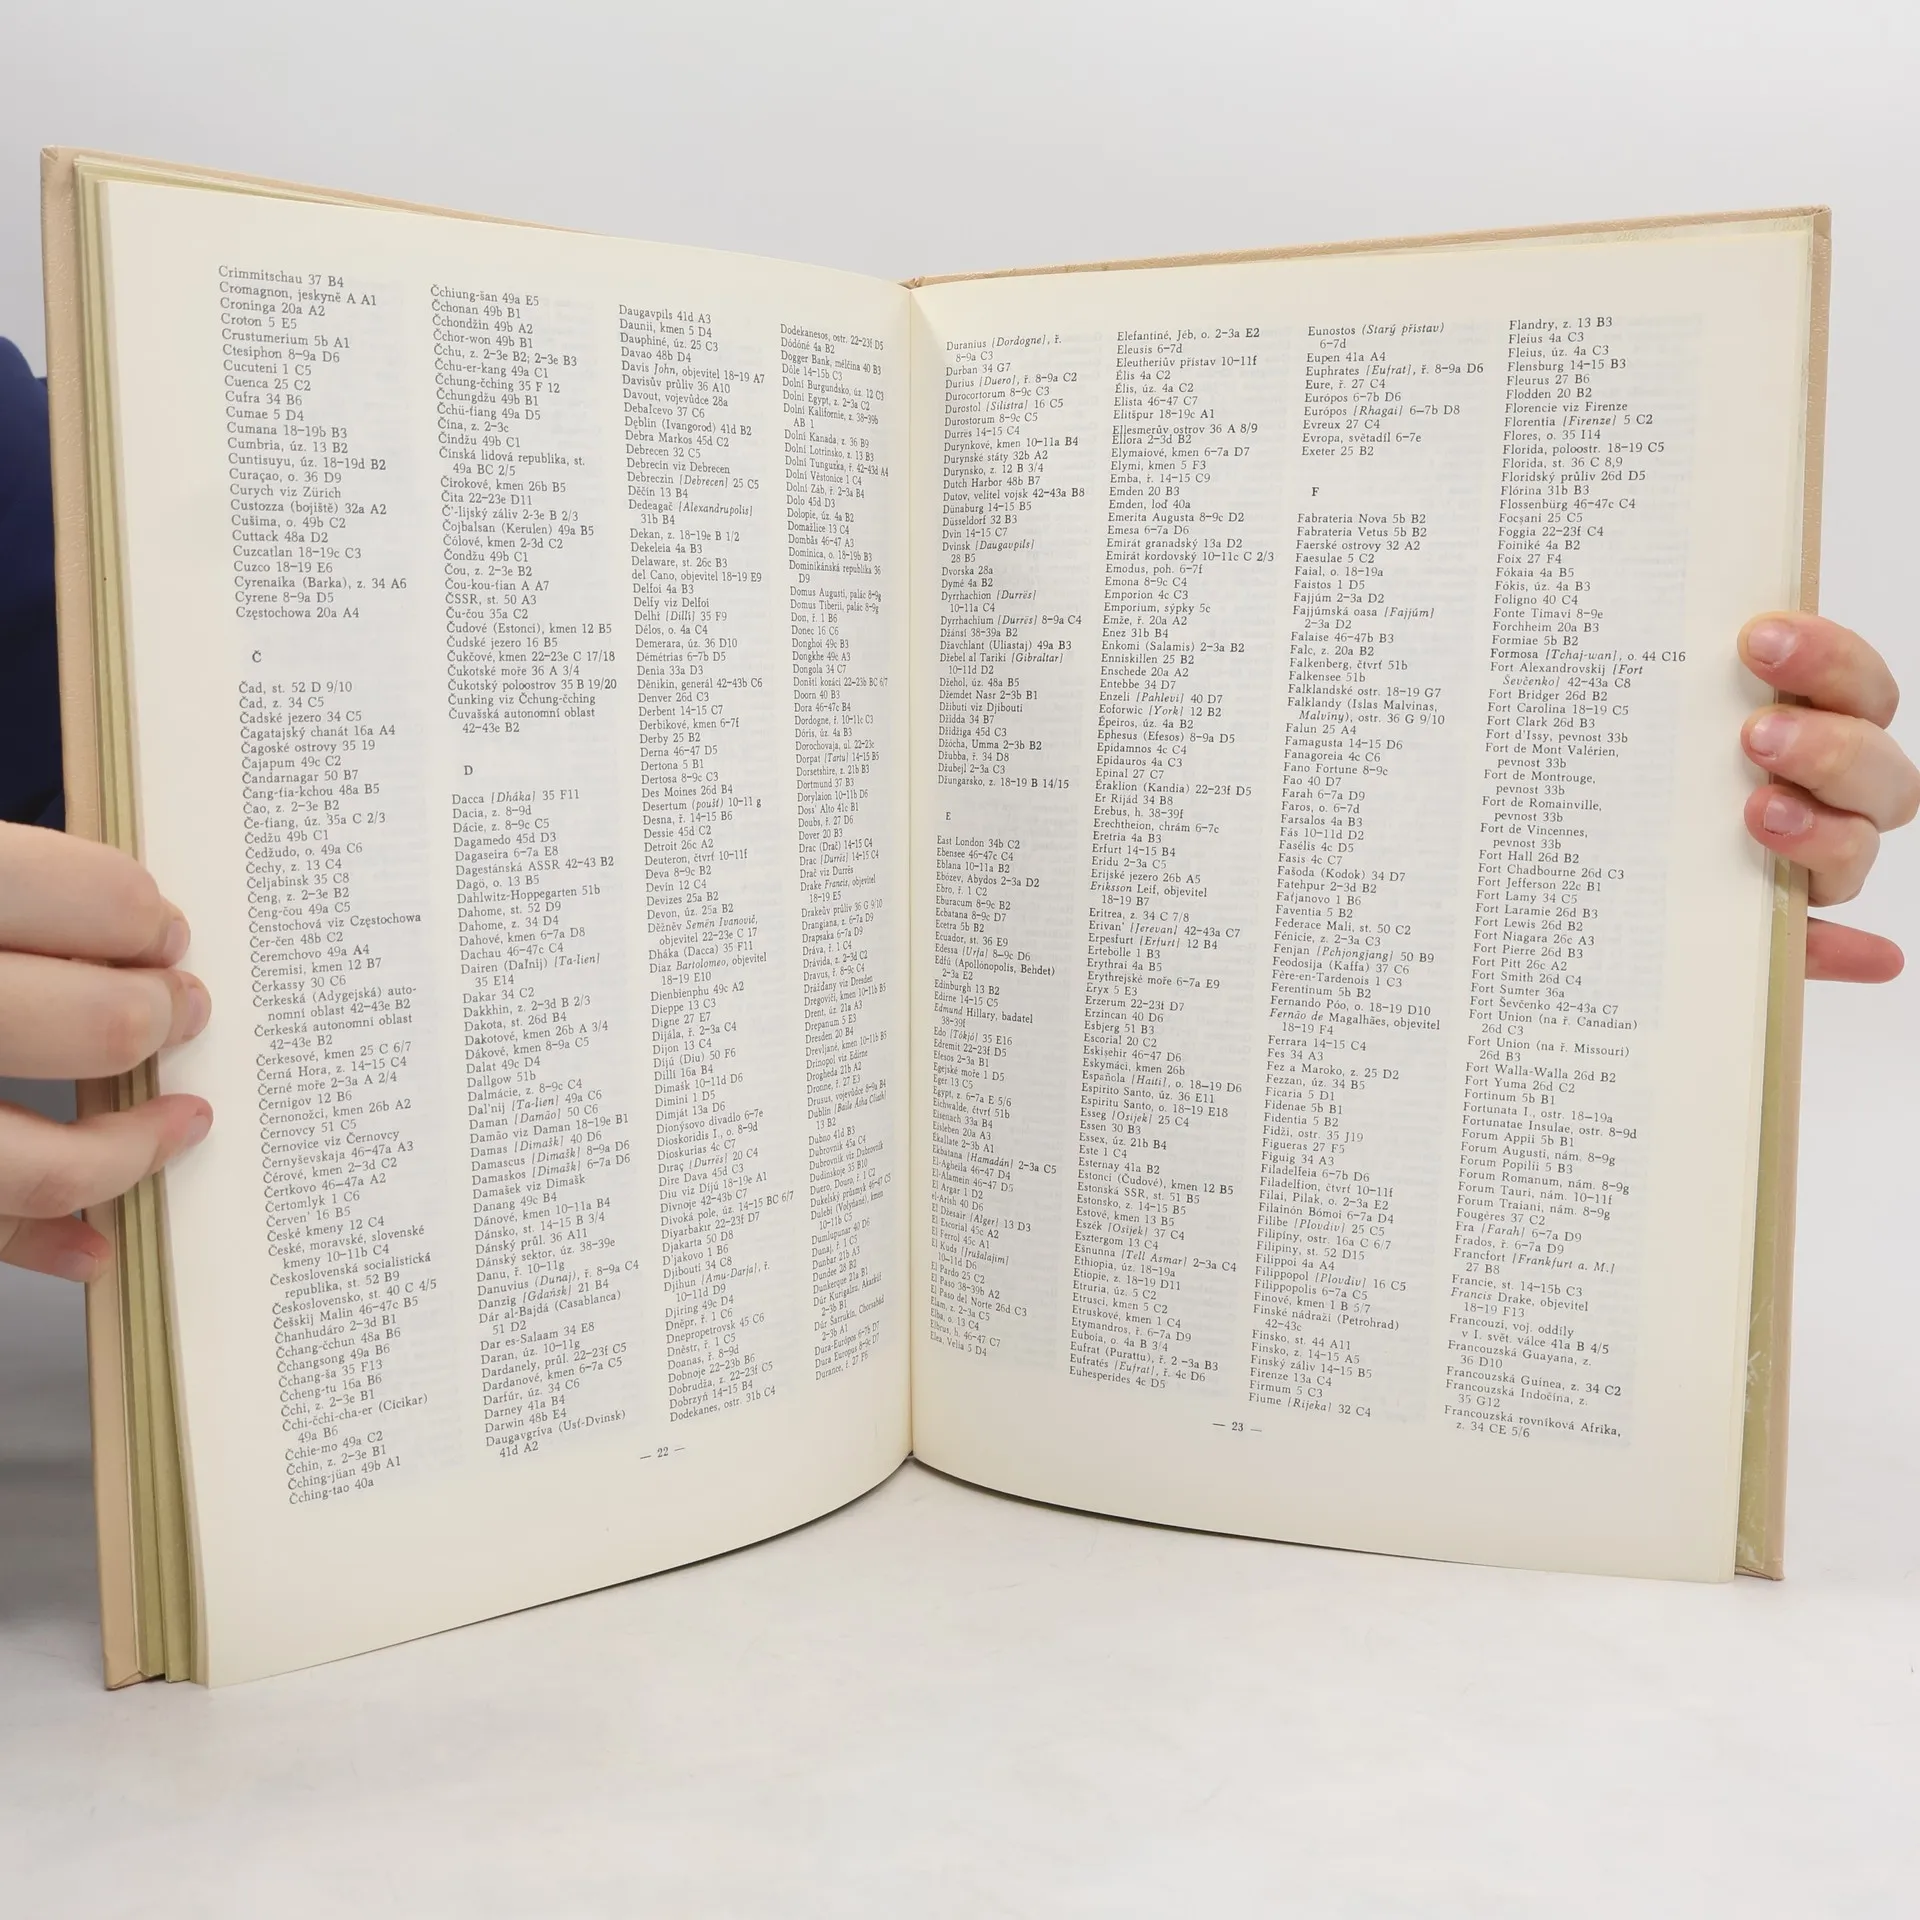 Crimmitschau 37 B4
Cromagnon, jeskyně A A1
Croninga 20a A2
Croton 5 E5
Crustumerium 5b A1
Ctesiphon 8–9a D6
Cucuteni 1 C5
Cuenca 25 C2
Cufra 34 B6
Cumae 5 D4
Cumana 18–19b B3
Cumbria, úz. 13 B2
Cuntisuyu, úz. 18–19d B2
Curaçao, o. 36 D9
Curych viz Zürich
Custozza (bojiště) 32a A2
Cušima, o. 49b C2
Cuttack 48a D2
Cuzcatlan 18–19c C3
Cuzco 18–19 E6
Cyrenaika (Barka), z. 34 A6
Cyrene 8–9a D5
Częstochowa 20a A4
Č
Čad, st. 52 D 9/10
Čad, z. 34 C5
Čadské jezero 34 C5
Čagatajský chanát 16a A4
Čagoské ostrovy 35 19
Čajapum 49c C2
Čandarnagar 50 B7
Čang-ťia-kchou 48a B5
Čao, z. 2–3e B2
Če-ťiang, úz. 35a C 2/3
Čedžu 49b C1
Čedžudo, o. 49a C6
Čechy, z. 13 C4
Čeljabinsk 35 C8
Čeng, z. 2–3e B2
Čeng-čou 49a C5
Čenstochová viz Częstochowa
Čer-čen 48b C2
Čeremchovo 49a A4
Čeremisi, kmen 12 B7
Čerkassy 30 C6
Čerkeská (Adygejská) auto-
nomní oblast 42–43e B2
Čerkeská autonomní oblast
42–43e B2
Čerkesové, kmen 25 C 6/7
Černá Hora, z. 14–15 C4
Černé moře 2–3a A 2/4
Černigov 12 B6
Černonožci, kmen 26b A2
Černovcy 51 C5
Černovice viz Černovcy
Černyševskaja 46–47a A3
Čérové, kmen 2–3d C2
Čertkovo 46–47a A2
Čertomlyk 1 C6
Červeň 16 B5
České kmeny 12 C4
České, moravské, slovenské
kmeny 10–11b C4
Československá socialistická
republika, st. 52 B9
Československo, st. 40 C 4/5
Češskij Malin 46–47c B5
Čhanhudáro 2–3d B1
Čchang-čchun 48a B6
Čchangsong 49a B6
Čchang-ša 35 F13
Čcheng-tu 16a B6
Čchi, z. 2–3e B1
Čchi-čchi-cha-er (Cicikar)
49a B6
Čchie-mo 49a C2
Čchin, z. 2–3e B1
Čching-jüan 49b A1
Čching-tao 40a
Čchiung-šan 49a E5
Čchonan 49b B1
Čchondžin 49b A2
Čchor-won 49b B1
Čchu, z. 2–3e B2; 2–3e B3
Čchu-er-kang 49a C1
Čchung-čching 35 F 12
Čchungdžu 49b B1
Čchü-ťiang 49a D5
Čína, z. 2–3c
Čindžu 49b C1
Čínská lidová republika, st.
49a BC 2/5
Čirokové, kmen 26b B5
Čita 22–23e D11
Č'-lijský záliv 2–3e B 2/3
Čojbalsan (Kerulen) 49a B5
Čólové, kmen 2–3d C2
Čondžu 49b C1
Čou, z. 2–3e B2
Čou-kou-ťian A A7
ČSSR, st. 50 A3
Ču-čou 35a C2
Čudové (Estonci), kmen 12 B5
Čudské jezero 16 B5
Čukčové, kmen 22–23e C 17/18
Čukotské moře 36 A 3/4
Čukotský poloostrov 35 B 19/20
Čunking viz Čchung-čching
Čuvašská autonomní oblast
42–43e B2
D
Dacca [Dháka] 35 F11
Dacia, z. 8–9d
Dácie, z. 8–9c C5
Dagamedo 45d D3
Dagaseira 6–7a E8
Dagestánská ASSR 42–43 B2
Dagö, o. 13 B5
Dahlwitz-Hoppegarten 51b
Dahome, st. 52 D9
Dahome, z. 34 D4
Dahové, kmen 6–7a D8
Dachau 46–47c C4
Dairen (Dalnij) [Ta-lien]
35 E14
Dakar 34 C2
Dakkhin, z. 2–3d B 2/3
Dakota, st. 26d B4
Dakotové, kmen 26b A 3/4
Dákové, kmen 8–9a C5
Dalat 49c D4
Dallgow 51b
Dalmácie, z. 8–9c C4
Dal'nij [Ta-lien] 49a C6
Daman [Damão] 50 C6
Damão viz Daman 18–19e B1
Damas [Dimašk] 40 D6
Damascus [Dimašk] 8–9a D6
Damaskos [Dimašk] 6–7a D6
Damašek viz Dimašk
Danang 49c B4
Dánové, kmen 10–11a B4
Dánsko, st. 14–15 B 3/4
Dánský průl. 36 A11
Dánský sektor, úz. 38–39e
Danu, ř. 10–11g
Danuvius (Dunaj), ř. 8–9a C4
Danzig [Gdańsk] 21 B4
Dár al-Bajdá (Casablanca)
51 D2
Dar es-Salaam 34 E8
Daran, úz. 10–11g
Dardanely, průl. 22–23f C5
Dardanové, kmen 6–7a C5
Darfúr, úz. 34 C6
Darney 41a B4
Darwin 48b E4
Daugavgriva (Usť-Dvinsk)
41d A2
Daugavpils 41d A3
Daunii, kmen 5 D4
Dauphiné, úz. 25 C3
Davao 48b D4
Davis John, objevitel 18–19 A7
Davisův průliv 36 A10
Davout, vojevůdce 28a
Debaľcevo 37 C6
Dęblin (Ivangorod) 41d B2
Debra Markos 45d C2
Debrecen 32 C5
Debrecín viz Debrecen
Debreczin [Debrecen] 25 C5
Děčín 13 B4
Dedeagač [Alexandrupolis]
31b B4
Dekan, z. 18–19e B 1/2
Dekeleia 4a B3
Delaware, st. 26c B3
del Cano, objevitel 18–19 E9
Delfoi 4a B3
Delfy viz Delfoi
Delhi [Dillí] 35 F9
Délos, o. 4a C4
Demerara, úz. 36 D10
Démétrias 6–7b D5
Denia 33a D3
Děnikin, generál 42–43b C6
Denver 26d C3
Derbent 14–15 C7
Derbikové, kmen 6–7f
Derby 25 B2
Derna 46–47 D5
Dertona 5 B1
Dertosa 8–9c C3
Des Moines 26d B4
Desertum (poušť) 10–11 g
Desna, ř. 14–15 B6
Dessie 45d C2
Detroit 26c A2
Deuteron, čtvrť 10–11f
Deva 8–9c B2
Devín 12 C4
Devizes 25a B2
Devon, úz. 25a B2
Děžněv Semën Ivanovič,
objevitel 22–23e C 17
Dháka (Dacca) 35 F11
Diaz Bartolomeo, objevitel
18–19 E10
Dienbienphu 49c A2
Dieppe 13 C3
Digne 27 E7
Dijála, ř. 2–3a C4
Dijon 13 C4
Dijú (Diu) 50 F6
Dillí 16a B4
Dimašk 10–11d D6
Dimini 1 D5
Dimját 13a D6
Dionýsovo divadlo 6–7e
Dioskoridis I., o. 8–9d
Dioskurias 4c C7
Diraç [Durrës] 20 C4
Dire Dava 45d C3
Diu viz Dijú 18–19e A1
Divnoje 42–43b C7
Divoká pole, úz. 14–15 BC 6/7
Diyarbakır 22–23f D7
Djakarta 50 D8
D'jakovo 1 B6
Djibouti 34 C8
Djihun [Amu-Darja], ř.
10–11d D9
Djiring 49c D4
Dněpr, ř. 1 C6
Dnepropetrovsk 45 C6
Dněstr, ř. 1 C5
Doanas, ř. 8–9d
Dobnoje 22–23b B6
Dobrudža, z. 22–23f C5
Dobrzyń 14–15 B4
Dodekanes, ostr. 31b C4
Dodekanesos, ostr. 22–23f D5
Dódóné 4a B2
Dogger Bank, mělčina 40 B3
Dôle 14–15b C3
Dolní Burgundsko, úz. 12 C3
Dolní Egypt, z. 2–3a C2
Dolní Kalifornie, z. 38–39b
AB 1
Dolní Kanada, z. 36 B9
Dolní Lotrinsko, z. 13 B3
Dolní Tunguzka, ř. 42–43d A4
Dolní Věstonice 1 C4
Dolní Záb, ř. 2–3a B4
Dolo 45d D3
Dolopie, úz. 4a B2
Domažlice 13 C4
Dombås 46–47 A3
Dominica, o. 18–19b B3
Dominikánská republika 36
D9
Domus Augusti, palác 8–9g
Domus Tiberii, palác 8–9g
Don, ř. 1 B6
Donec 16 C6
Donghoi 49c B3
Dongkhe 49c A3
Dongola 34 C7
Donští kozáci 22–23b BC 6/7
Doorn 40 B3
Dora 46–47c B4
Dordogne, ř. 10–11c C3
Dóris, úz. 4a B3
Dorochovaja, ul. 22–23c
Dorpat [Tartu] 14–15 B5
Dorsetshire, z. 21b B3
Dortmund 37 B3
Dorylaion 10–11b D6
Doss' Alto 41c B1
Doubs, ř. 27 D6
Dover 20 B3
Drac (Drač) 14–15 C4
Drac [Durrës] 14–15 C4
Drač viz Durrës
Drake Francis, objevitel
18–19 E5
Drakeův průliv 36 G 9/10
Drangiana, z. 6–7a D9
Drapsaka 6–7a D9
Dráva, ř. 1 C4
Drávida, z. 2–3d C2
Dravus, ř. 8–9c C4
Drážďany viz Dresden
Dregoviči, kmen 10–11b B5
Drent, úz. 21a A3
Drepanum 5 E3
Dresden 20 B4
Drevljané, kmen 10–11b B5
Drinopol viz Edirne
Drogheda 21b A2
Dronne, ř. 27 E3
Drusus, vojevůdce 8–9a B4
Dublin [Baile Átha Cliath]
13 B2
Dubno 41d B3
Dubrovnik 45a C4
Dubrovník viz Dubrovnik
Dudinskoje 35 B10
Duero, Douro, ř. 1 C2
Dukelský průsmyk 46–47 C5
Dulebi (Volyňané), kmen
10–11b C5
Dumlupunar 40 D6
Dunaj, ř. 1 C5
Dunbar 21b A3
Dundee 28 B2
Dunkerque 21a B1
Dúr Kurigalzu, Akarkúf
2–3b B1
Dúr Šarrukín, Chorsabad
2–3b A1
Dura-Európos 6–7b D7
Dura Europus 8–9c D7
Durance, ř. 27 F6
— 22 —
Duranius [Dordogne], ř.
8–9a C3
Durban 34 G7
Durius [Duero], ř. 8–9a C2
Durocortorum 8–9c C3
Durostol [Silistra] 16 C5
Durostorum 8–9c C5
Durrës 14–15 C4
Durynkové, kmen 10–11a B4
Durynské státy 32b A2
Durynsko, z. 12 B 3/4
Dutch Harbor 48b B7
Dutov, velitel vojsk 42–43a B8
Dünaburg 14–15 B5
Düsseldorf 32 B3
Dvin 14–15 C7
Dvinsk [Daugavpils]
28 B5
Dvorska 28a
Dymé 4a B2
Dyrrhachion [Durrës]
10–11a C4
Dyrrhachium [Durrës] 8–9a C4
Džánsí 38–39a B2
Džavchlant (Uliastaj) 49a B3
Džebel al Tarikí [Gibraltar]
10–11d D2
Džehol, úz. 48a B5
Džemdet Nasr 2–3b B1
Džibuti viz Djibouti
Džidda 34 B7
Džidžiga 45d C3
Džócha, Umma 2–3b B2
Džubba, ř. 34 D8
Džubejl 2–3a C3
Džungarsko, z. 18–19 B 14/15
E
East London 34b C2
Ebensee 46–47c C4
Eblana 10–11a B2
Ebózev, Abydos 2–3a D2
Ebro, ř. 1 C2
Eburacum 8–9c B2
Ecbatana 8–9c D7
Ecetra 5b B2
Ecuador, st. 36 E9
Edessa [Urfa] 8–9c D6
Edfú (Apollónopolis, Behdet)
2–3a E2
Edinburgh 13 B2
Edirne 14–15 C5
Edmund Hillary, badatel
38–39f
Edo [Tókjó] 35 E16
Edremit 22–23f D5
Efesos 2–3a B1
Egejské moře 1 D5
Eger 13 C5
Egypt, z. 6–7a E 5/6
Eichwalde, čtvrť 51b
Eisenach 33a B4
Eisleben 20a A3
Ekallate 2–3b A1
Ekbatana [Hamadán] 2–3a C5
El-Agheila 46–47 D4
El-Alamein 46–47 D5
El Argar 1 D2
el-Arish 40 D6
El Džesair [Alger] 13 D3
El Escorial 45c A2
El Ferrol 45c A1
El Kuds [Jrušalajim]
10–11d D6
El Pardo 25 C2
El Paso 38–39b A2
El Paso del Norte 26d C3
Elam, z. 2–3a C5
Elba, o. 13 C4
Elbrus, h. 46–47 C7
Elea, Velia 5 D4
Elefantiné, Jéb, o. 2–3a E2
Eleusis 6–7d
Eleutheriův přístav 10–11f
Élis 4a C2
Élis, úz. 4a C2
Elista 46–47 C7
Elitšpur 18–19c A1
Ellesmerův ostrov 36 A 8/9
Ellora 2–3d B2
Elymaiové, kmen 6–7a D7
Elymi, kmen 5 F3
Emba, ř. 14–15 C9
Emden 20 B3
Emden, loď 40a
Emerita Augusta 8–9c D2
Emesa 6–7a D6
Emirát granadský 13a D2
Emirát kordovský 10–11c C 2/3
Emodus, poh. 6–7f
Emona 8–9c C4
Emporion 4c C3
Emporium, sýpky 5c
Emže, ř. 20a A2
Enez 31b B4
Enkomi (Salamis) 2–3a B2
Enniskillen 25 B2
Enschede 20a A2
Entebbe 34 D7
Enzeli [Pahlevi] 40 D7
Eoforwic [York] 12 B2
Épeiros, úz. 4a B2
Ephesus (Efesos) 8–9a D5
Epidamnos 4c C4
Epidauros 4a C3
Epinal 27 C7
Éraklion (Kandia) 22–23f D5
Er Rijád 34 B8
Erebus, h. 38–39f
Erechtheion, chrám 6–7c
Eretria 4a B3
Erfurt 14–15 B4
Eridu 2–3a C5
Erijské jezero 26b A5
Eriksson Leif, objevitel
18–19 B7
Eritrea, z. 34 C 7/8
Erivan' [Jerevan] 42–43a C7
Erpesfurt [Erfurt] 12 B4
Ertebölle 1 B3
Erythrai 4a B5
Erythrejské moře 6–7a E9
Eryx 5 E3
Erzerum 22–23f D7
Erzincan 40 D6
Esbjerg 51 B3
Escorial 20 C2
Eskişehir 46–47 D6
Eskymáci, kmen 26b
Española [Haiti], o. 18–19 D6
Espirito Santo, úz. 36 E11
Espiritu Santo, o. 18–19 E18
Esseg [Osijek] 25 C4
Essen 30 B3
Essex, úz. 21b B4
Este 1 C4
Esternay 41a B2
Estonci (Čudové), kmen 12 B5
Estonská SSR, st. 51 B5
Estonsko, z. 14–15 B5
Estové, kmen 13 B5
Eszék [Osijek] 37 C4
Esztergom 13 C4
Ešnunna [Tell Asmar] 2–3a C4
Ethiopia, úz. 18–19a
Etiopie, z. 18–19 D11
Etruria, úz. 5 C2
Etrusci, kmen 5 C2
Etruskové, kmen 1 C4
Etymandros, ř. 6–7a D9
Euboia, o. 4a B 3/4
Eufrat (Purattu), ř. 2–3a B3
Eufratés [Eufrat], ř. 4c D6
Euhesperides 4c D5
Eunostos (Starý přístav)
6–7d
Eupen 41a A4
Euphrates [Eufrat], ř. 8–9a D6
Eure, ř. 27 C4
Európos 6–7b D6
Európos [Rhagai] 6–7b D8
Evreux 27 C4
Evropa, světadíl 6–7e
Exeter 25 B2
F
Fabrateria Nova 5b B2
Fabrateria Vetus 5b B2
Faerské ostrovy 32 A2
Faesulae 5 C2
Faial, o. 18–19a
Faistos 1 D5
Fajjúm 2–3a D2
Fajjúmská oasa [Fajjúm]
2–3a D2
Falaise 46–47b B3
Falc, z. 20a B2
Falkenberg, čtvrť 51b
Falkensee 51b
Falklandské ostr. 18–19 G7
Falklandy (Islas Malvinas,
Malviny), ostr. 36 G 9/10
Falun 25 A4
Famagusta 14–15 D6
Fanagoreia 4c C6
Fano Fortune 8–9c
Fao 40 D7
Farah 6–7a D9
Faros, o. 6–7d
Farsalos 4a B3
Fás 10–11d D2
Fasélis 4c D5
Fasis 4c C7
Fašoda (Kodok) 34 D7
Fatehpur 2–3d B2
Faťjanovo 1 B6
Faventia 5 B2
Federace Mali, st. 50 C2
Fénicie, z. 2–3a C3
Fenjan [Pchjongjang] 50 B9
Feodosija (Kaffa) 37 C6
Fère-en-Tardenois 1 C3
Ferentinum 5b B2
Fernando Póo, o. 18–19 D10
Fernão de Magalhães, objevitel
18–19 F4
Ferrara 14–15 C4
Fes 34 A3
Fez a Maroko, z. 25 D2
Fezzan, úz. 34 B5
Ficaria 5 D1
Fidenae 5b B1
Fidentia 5 B2
Fidži, ostr. 35 J19
Figueras 27 F5
Figuig 34 A3
Filadelfeia 6–7b D6
Filadelfion, čtvrť 10–11f
Filai, Pilak, o. 2–3a E2
Filainón Bómoi 6–7a D4
Filibe [Plovdiv] 25 C5
Filipíny, ostr. 16a C 6/7
Filipiny, st. 52 D15
Filippoi 4a A4
Filippopol [Plovdiv] 16 C5
Filippopolis 6–7a C5
Finové, kmen 1 B 5/7
Finské nádraží (Petrohrad)
42–43c
Finsko, st. 44 A11
Finsko, z. 14–15 A5
Finský záliv 14–15 B5
Firenze 13a C4
Firmum 5 C3
Fiume [Rijeka] 32 C4
Flandry, z. 13 B3
Fleius 4a C3
Fleius, úz. 4a C3
Flensburg 14–15 B3
Fleurus 27 B6
Flodden 20 B2
Florencie viz Firenze
Florentia [Firenze] 5 C2
Flores, o. 35 I14
Florida, poloostr. 18–19 C5
Florida, st. 36 C 8,9
Floridský průliv 26d D5
Flórina 31b B3
Flossenbürg 46–47c C4
Focșani 25 C5
Foggia 22–23f C4
Foiniké 4a B2
Foix 27 F4
Fókaia 4a B5
Fókis, úz. 4a B3
Foligno 40 C4
Fonte Timavi 8–9e
Forchheim 20a B3
Formiae 5b B2
Formosa [Tchaj-wan], o. 44 C16
Fort Alexandrovskij [Fort
Ševčenko] 42–43a C8
Fort Bridger 26d B2
Fort Carolina 18–19 C5
Fort Clark 26d B3
Fort d'Issy, pevnost 33b
Fort de Mont Valérien,
pevnost 33b
Fort de Montrouge,
pevnost 33b
Fort de Romainville,
pevnost 33b
Fort de Vincennes,
pevnost 33b
Fort Hall 26d B2
Fort Chadbourne 26d C3
Fort Jefferson 22c B1
Fort Lamy 34 C5
Fort Laramie 26d B3
Fort Lewis 26d B2
Fort Niagara 26c A3
Fort Pierre 26d B3
Fort Pitt 26c A2
Fort Smith 26d C4
Fort Sumter 36a
Fort Ševčenko 42–43a C7
Fort Union (na ř. Canadian)
26d C3
Fort Union (na ř. Missouri)
26d B3
Fort Walla-Walla 26d B2
Fort Yuma 26d C2
Fortinum 5b B1
Fortunata I., ostr. 18–19a
Fortunatae Insulae, ostr. 8–9d
Forum Appii 5b B1
Forum Augusti, nám. 8–9g
Forum Popilii 5 B3
Forum Romanum, nám. 8–9g
Forum Tauri, nám. 10–11f
Forum Traiani, nám. 8–9g
Fougères 37 C2
Fra [Farah] 6–7a D9
Frados, ř. 6–7a D9
Francfort [Frankfurt a. M.]
27 B8
Francie, st. 14–15b C3
Francis Drake, objevitel
18–19 F13
Francouzi, voj. oddíly
v I. svět. válce 41a B 4/5
Francouzská Guayana, z.
36 D10
Francouzská Guinea, z. 34 C2
Francouzská Indočína, z.
35 G12
Francouzská rovníková Afrika,
z. 34 CE 5/6
— 23 —